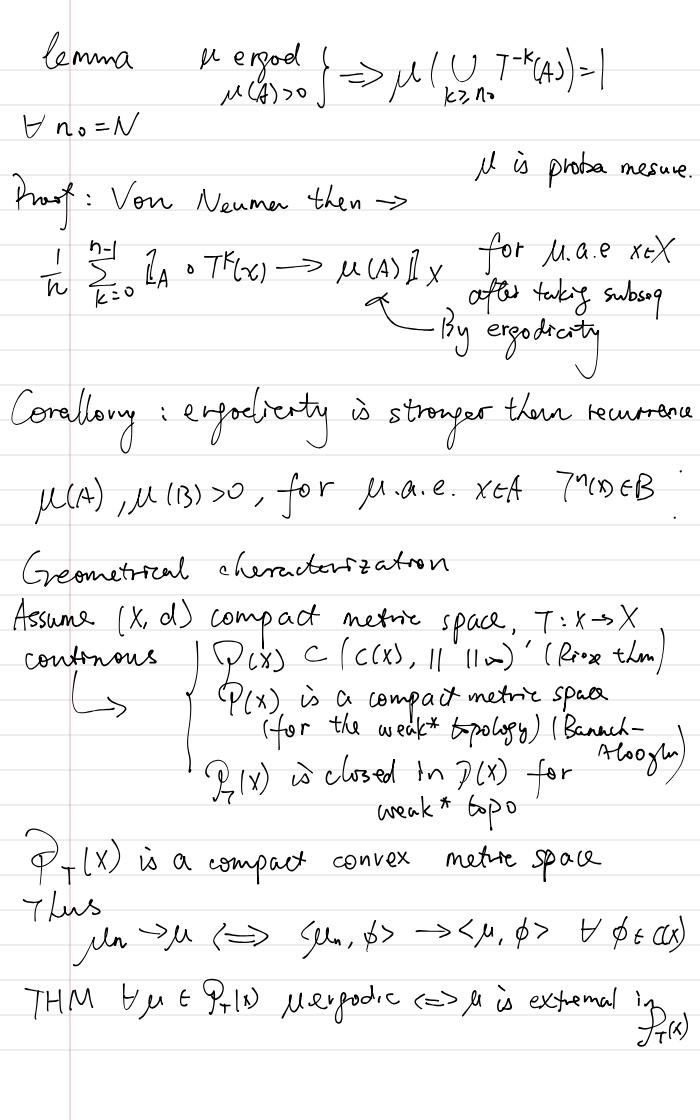 lemma μ ergod
μ(A)>0 } ⟹ μ(⋃_{k≥n₀} T^{-k}(A))=1
∀ n₀=N
μ is proba mesure.
Proof: Von Neuman then →
1/n ∑_{k=0}^{n-1} 𝟙_A ∘ T^k(x) ⟶ μ(A)𝟙_X for μ.a.e x∈X
after takig subseq
By ergodicity
Corallory : ergodicity is stronger them recurrence
μ(A), μ(B)>0, for μ.a.e. x∈A T^n(x)∈B
Geometrical characterization
Assume (X, d) compact metric space, T: X→X
continous P(X) ⊂ (C(X), || ||∞)' (Riesz thm)
P(X) is a compact metric space
(for the weak* topology) (Banach-
Alaoglu)
P_T(X) is closed in P(X) for
weak* topo
P_T(X) is a compact convex metric space
Thus
μn → μ ⟺ <μn, ϕ> → <μ, ϕ> ∀ ϕ∈C(X)
THM ∀μ ∈ P_T(X) μ ergodic ⟺ μ is extremal in
P_T(X)